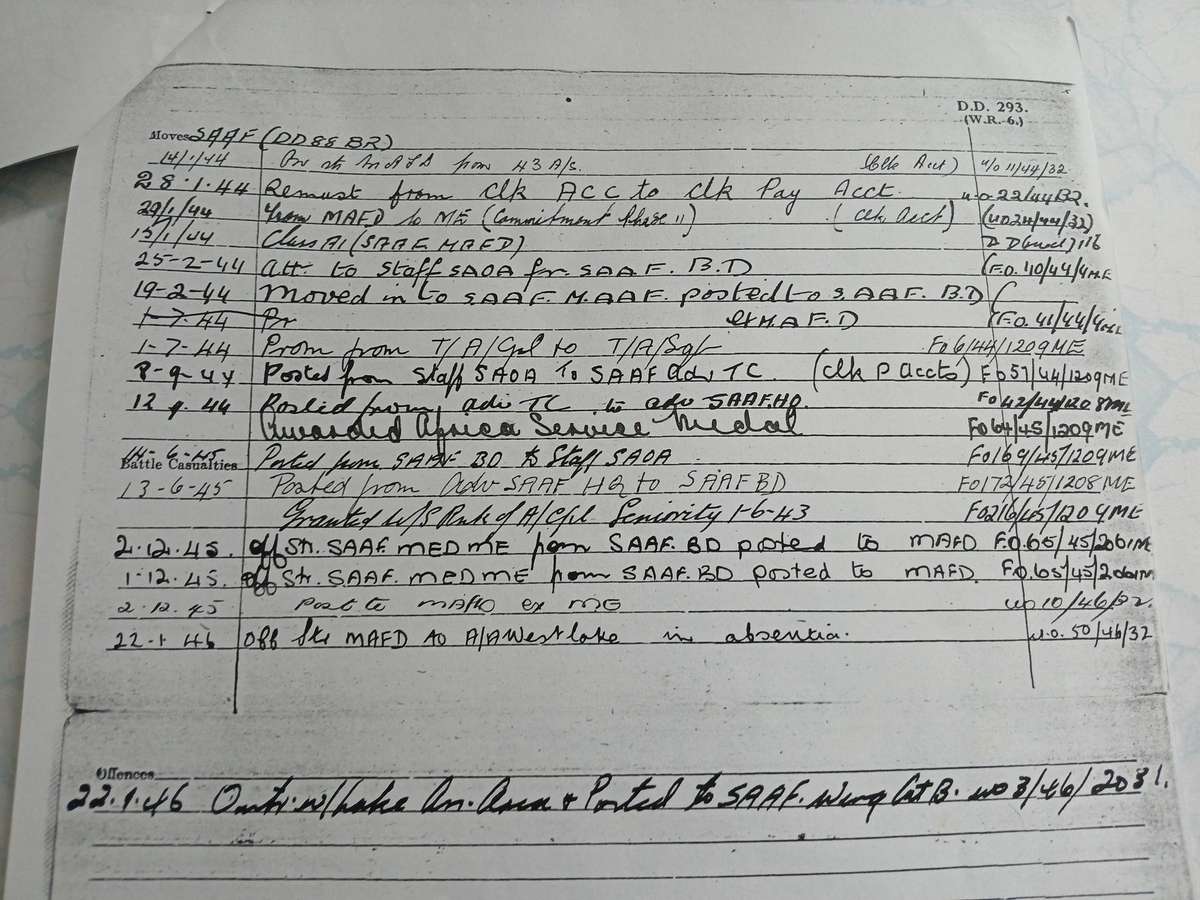 D.D. 293.
(W.R.-6.)
Moves SAAF (DD 88 BR)
14/1/44 from 43 A/S. (Clk Acct) w/o 11/44/32
28.1.44 Remust from Clk ACC to Clk Pay Acct. w.o 22/44B2.
29/1/44 from MAFD to ME (Commitment Phase 11) (Clk Acct) (WO 24/44/32)
15/1/44 Class A1 (SAAF MAFD)
25-2-44 Att. to Staff SAOA fr. SAAF. B.D (F.O. 40/44/4ME
19-2-44 Moved in to SAAF. M.AAF. posted to S.AAF. B.D (
1-7-44 Pr ex M.A F.D (F.O. 41/44/4ME
1-7-44 Prom from T/A/Cpl to T/A/Sgt Fo 61/44/1209ME
8-9-44 Posted from Staff SAOA To SAAF adv TC. (Clk P accts) Fo 57/44/1209ME
12 9.44 Posted from adv TC to adv SAAF.HQ. Fo 42/44/1208ME
Awarded Africa Service Medal Fo 64/45/1209ME
14-6-45 Posted from SAAF BD to Staff SAOA Fo 169/45/1209ME
Battle Casualties
13-6-45 Posted from Adv SAAF HQ to SAAF BD FO172/45/1208ME
Granted W/S Rnk of A/Cpl Seniority 1-6-43 Fo 216/45/1209ME
2.12.45. off Str. SAAF. MED ME from SAAF. BD posted to MAFD F.O.65/45/2061M
1.12.45. off Str. SAAF. MED ME from SAAF. BD posted to MAFD. F.O.65/45/2061M
2.12.45 Post to MAFD ex ME wo 10/46/32.
22.1.46 Off Str MAFD to A/A Westlake in absentia. w.o. 50/46/32
Offences
22.1.46 W/Lake An. Area & Posted to SAAF. Wing Cat B. wo 3/46/2031.